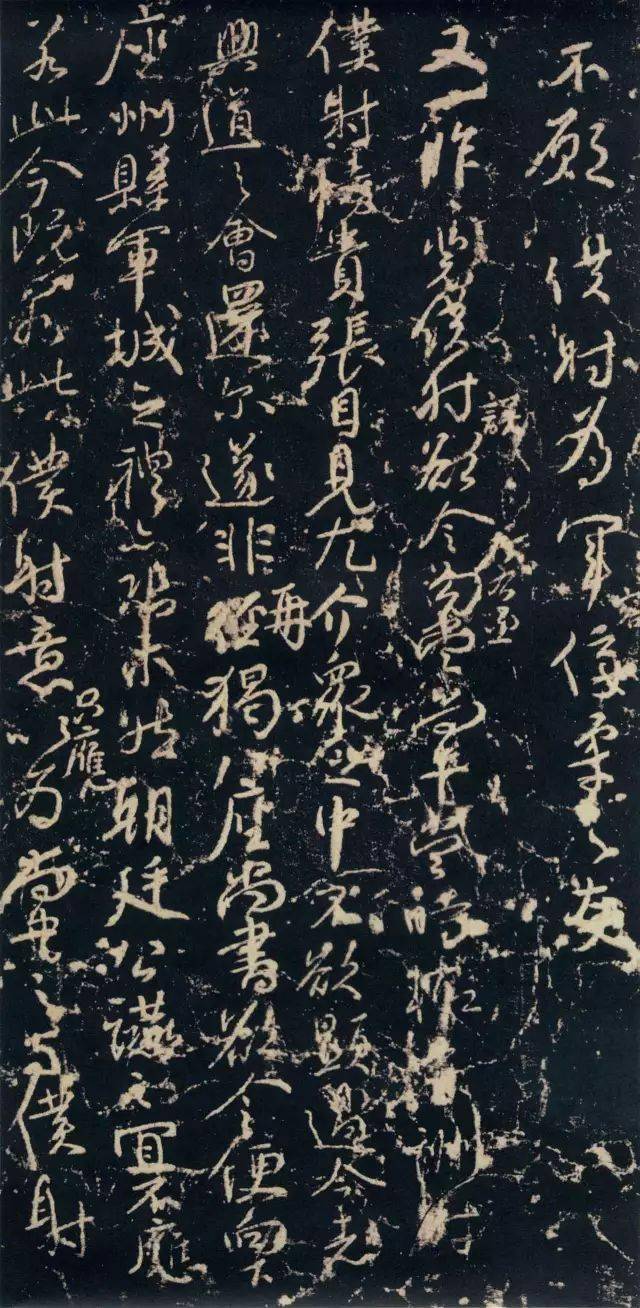 不願僕射為軍容佞柔之友
又一昨裴僕射誤欲令左右丞勾當尚書當時輒有酬對
僕射恃貴張目見尤介衆之中不欲顯過今者
興道之會還爾遂非再猲八座尚書欲令便向下
座州縣軍城之禮亦恐未然朝廷公讌之宜不應
若此今既若此僕射意只應以為尚書之與僕射